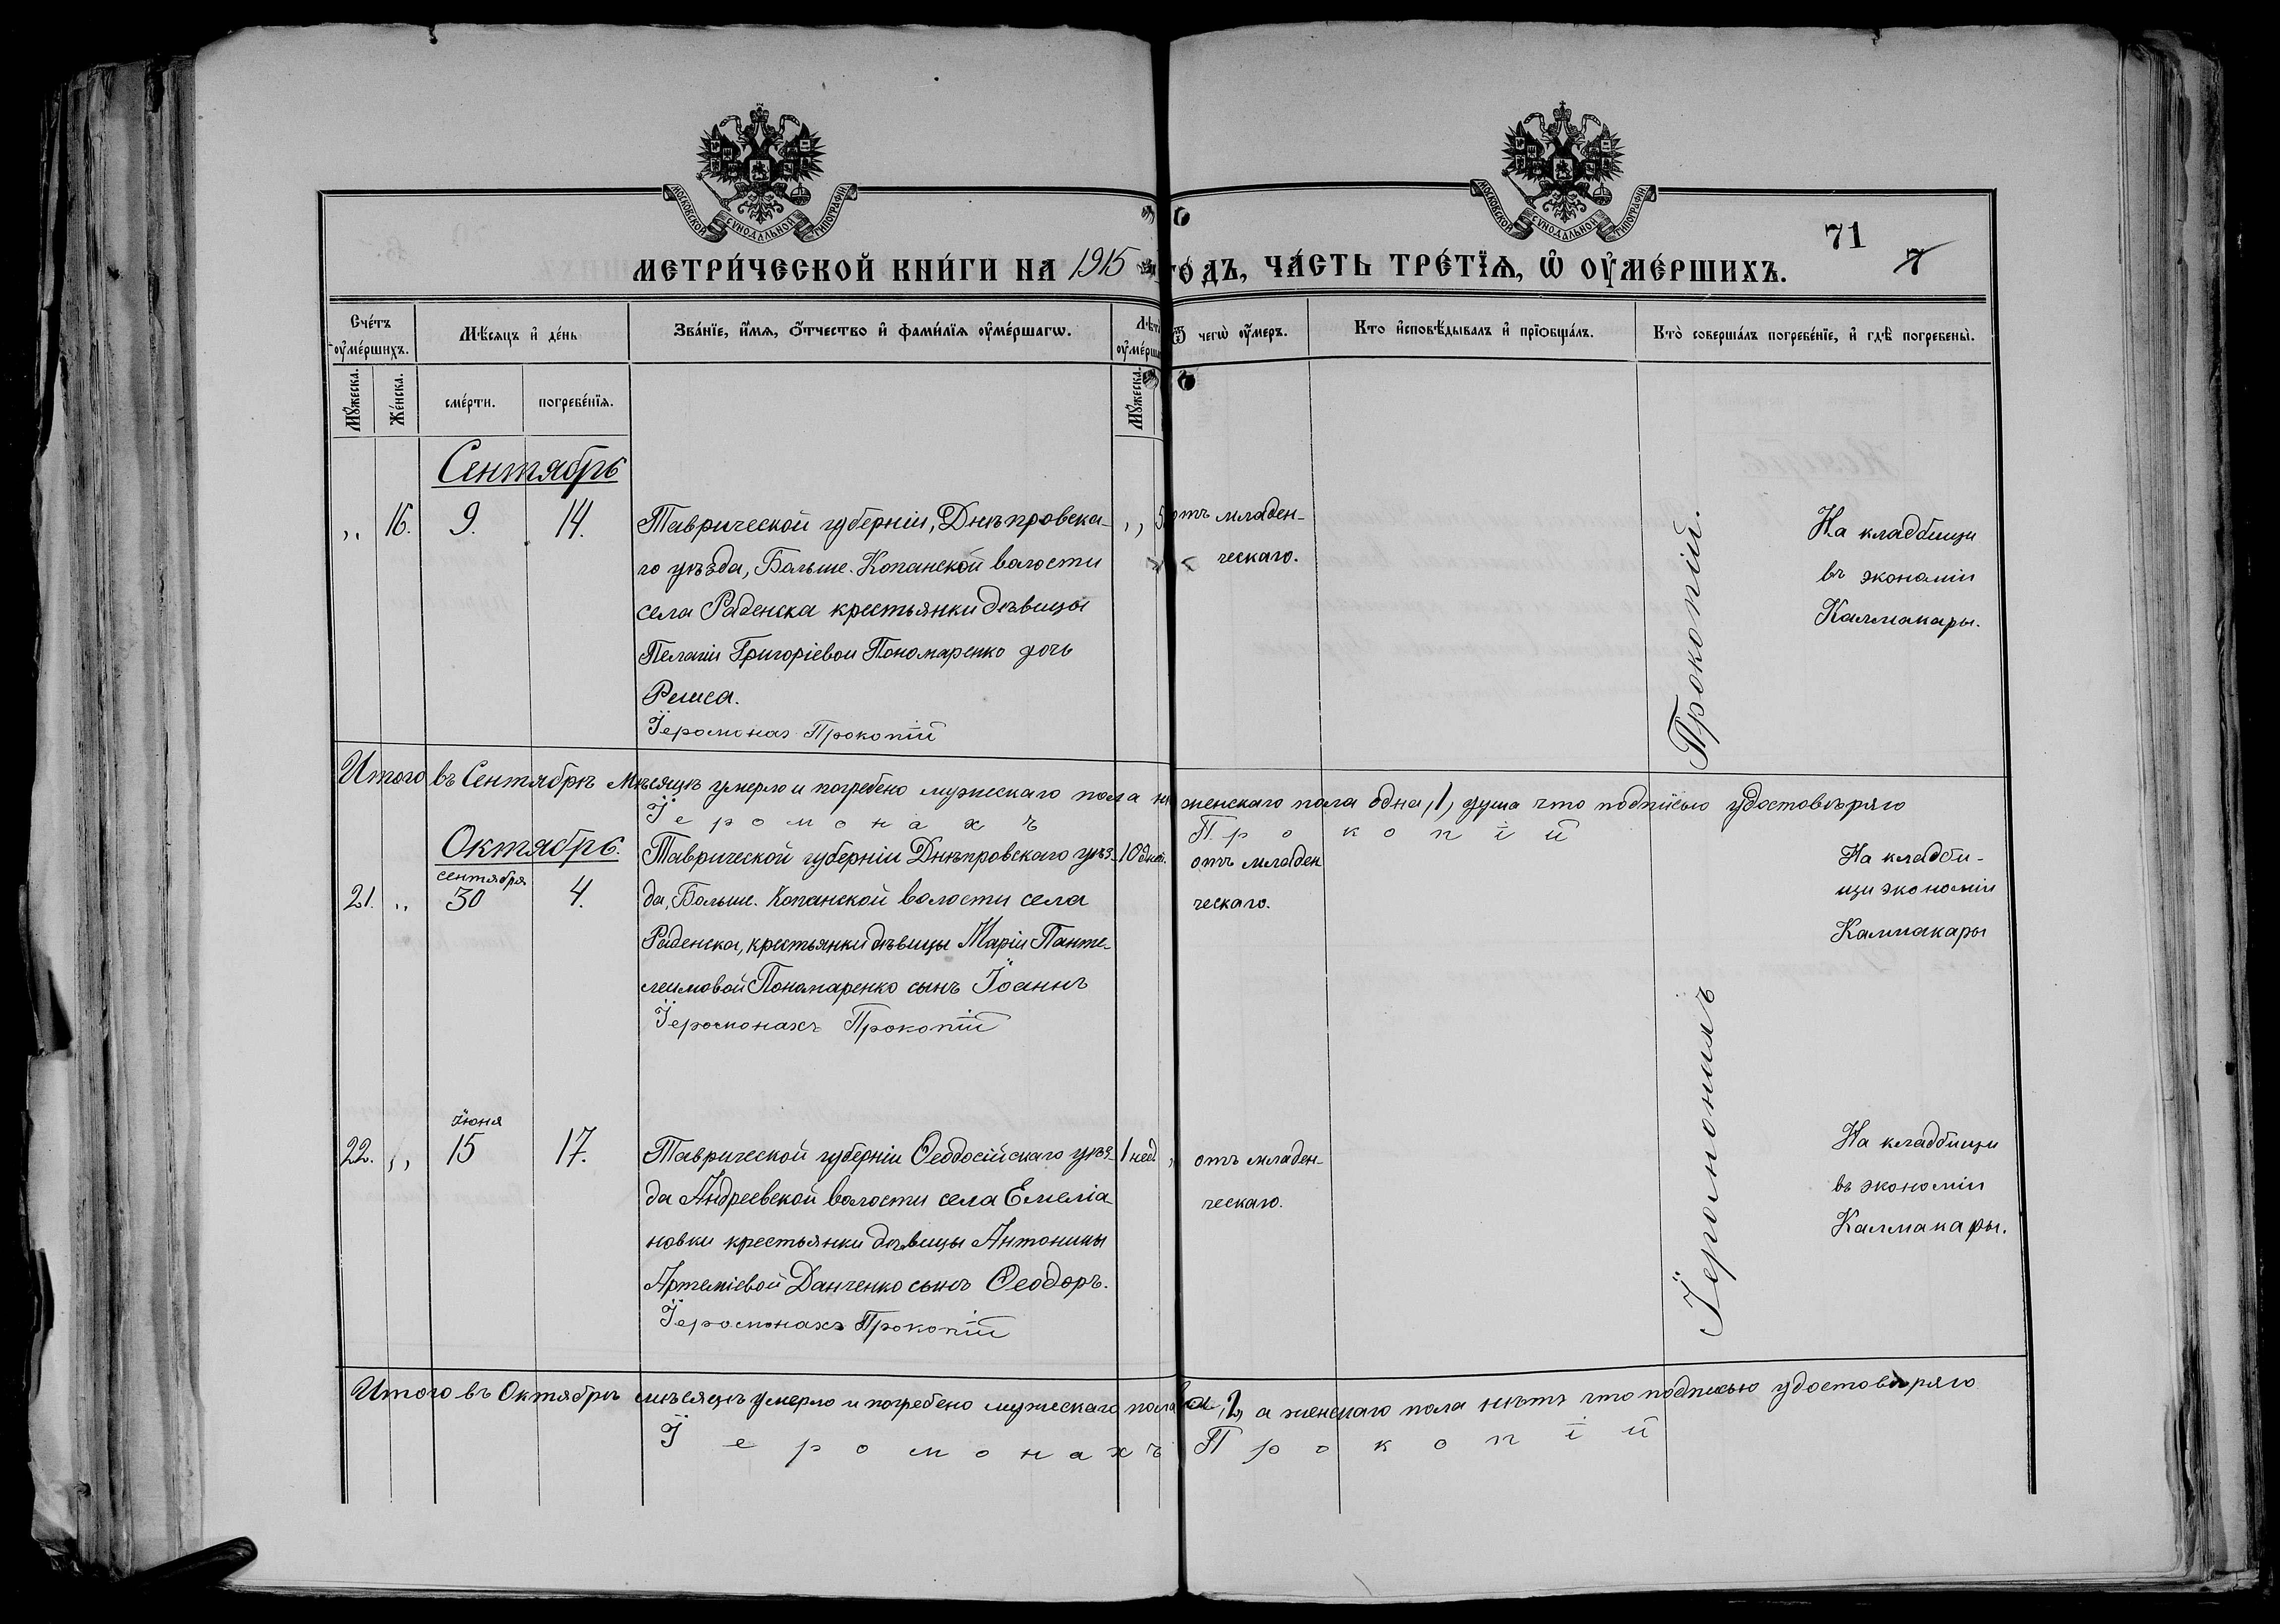 МОСКОВСКОЙ СѴНОДАЛЬНОЙ ТИПОГРАФІИ
МОСКОВСКОЙ СѴНОДАЛЬНОЙ ТИПОГРАФІИ
71
7
МЕТРИ́ЧЕСКОЙ КНИ́ГИ НА 1915 ГОДЪ, ЧА́СТЬ ТРЕ́ТЇѦ, Ѡ҆ ОУ҆МЕ́РШИХЪ.
Сче́тъ оу҆ме́ршихъ.
Мѣ́сѧцъ и҆ де́нь
Зва́нїе, и҆́мѧ, ѻ҆́тчество и҆ фами́лїѧ оу҆ме́ршагѡ.
Лѣта оу҆ме́рш
Ѿ чегѡ̀ оу҆́меръ.
Кто и҆сповѣ́дывалъ и҆ прїѡбща́лъ.
Кто̀ соверша́лъ погребе́нїе, и҆ гдѣ̀ погребены̀.
Мꙋ́жеска.
Же́нска.
сме́рти.
погребе́нїѧ.
Мꙋ́жеска.
Сентябрь
„ 16. 9. 14.
Таврической губерніи, Днѣпровска-
го уѣзда, Больше-Копанской волости
села Раденска крестьянки дѣвицы
Пелагіи Григоріевои Пономаренко дочь
Раиса.
Іеромонах Прокопій
„ 5
отъ младен-
ческаго.
На кладбищи
въ экономіи
Калмакары.
Итого въ Сентябрѣ мѣсяцѣ умерло и погребено мужескаго пола н женскаго пола одна, 1, душа что подписью удостовѣряю
Іеромонахъ Прокопій
Октябрь.
21. „ сентября 30 4.
Таврической губерніи Днѣпровскаго уѣз-
да, Больше-Копанской волости села
Раденска, крестьянки дѣвицы Маріи Панте-
леимовой Пономаренко сынъ Іоаннъ
Іеромонахъ Прокопій
10 дней.
отъ младен
ческаго.
На кладби-
щи экономіи
Калмакары
22. „ Іюня 15 17.
Таврической губерніи Ѳеодосійскаго уѣз-
да Андреевской волости села Емеліа
новки крестьянки дѣвицы Антонины
Артеміевой Данченко сынъ Ѳеодоръ.
Іеромонахъ Прокопій
1 нед „
отъ младен-
ческаго.
На кладбищи
въ экономіи
Калмакары.
Іеромонахъ Прокопій.
Итого въ Октябрѣ мѣсяцѣ умерло и погребено мужескаго пола два, 2, а женскаго пола нѣтъ что подписью удостовѣряю
Іеромонахъ Прокопій